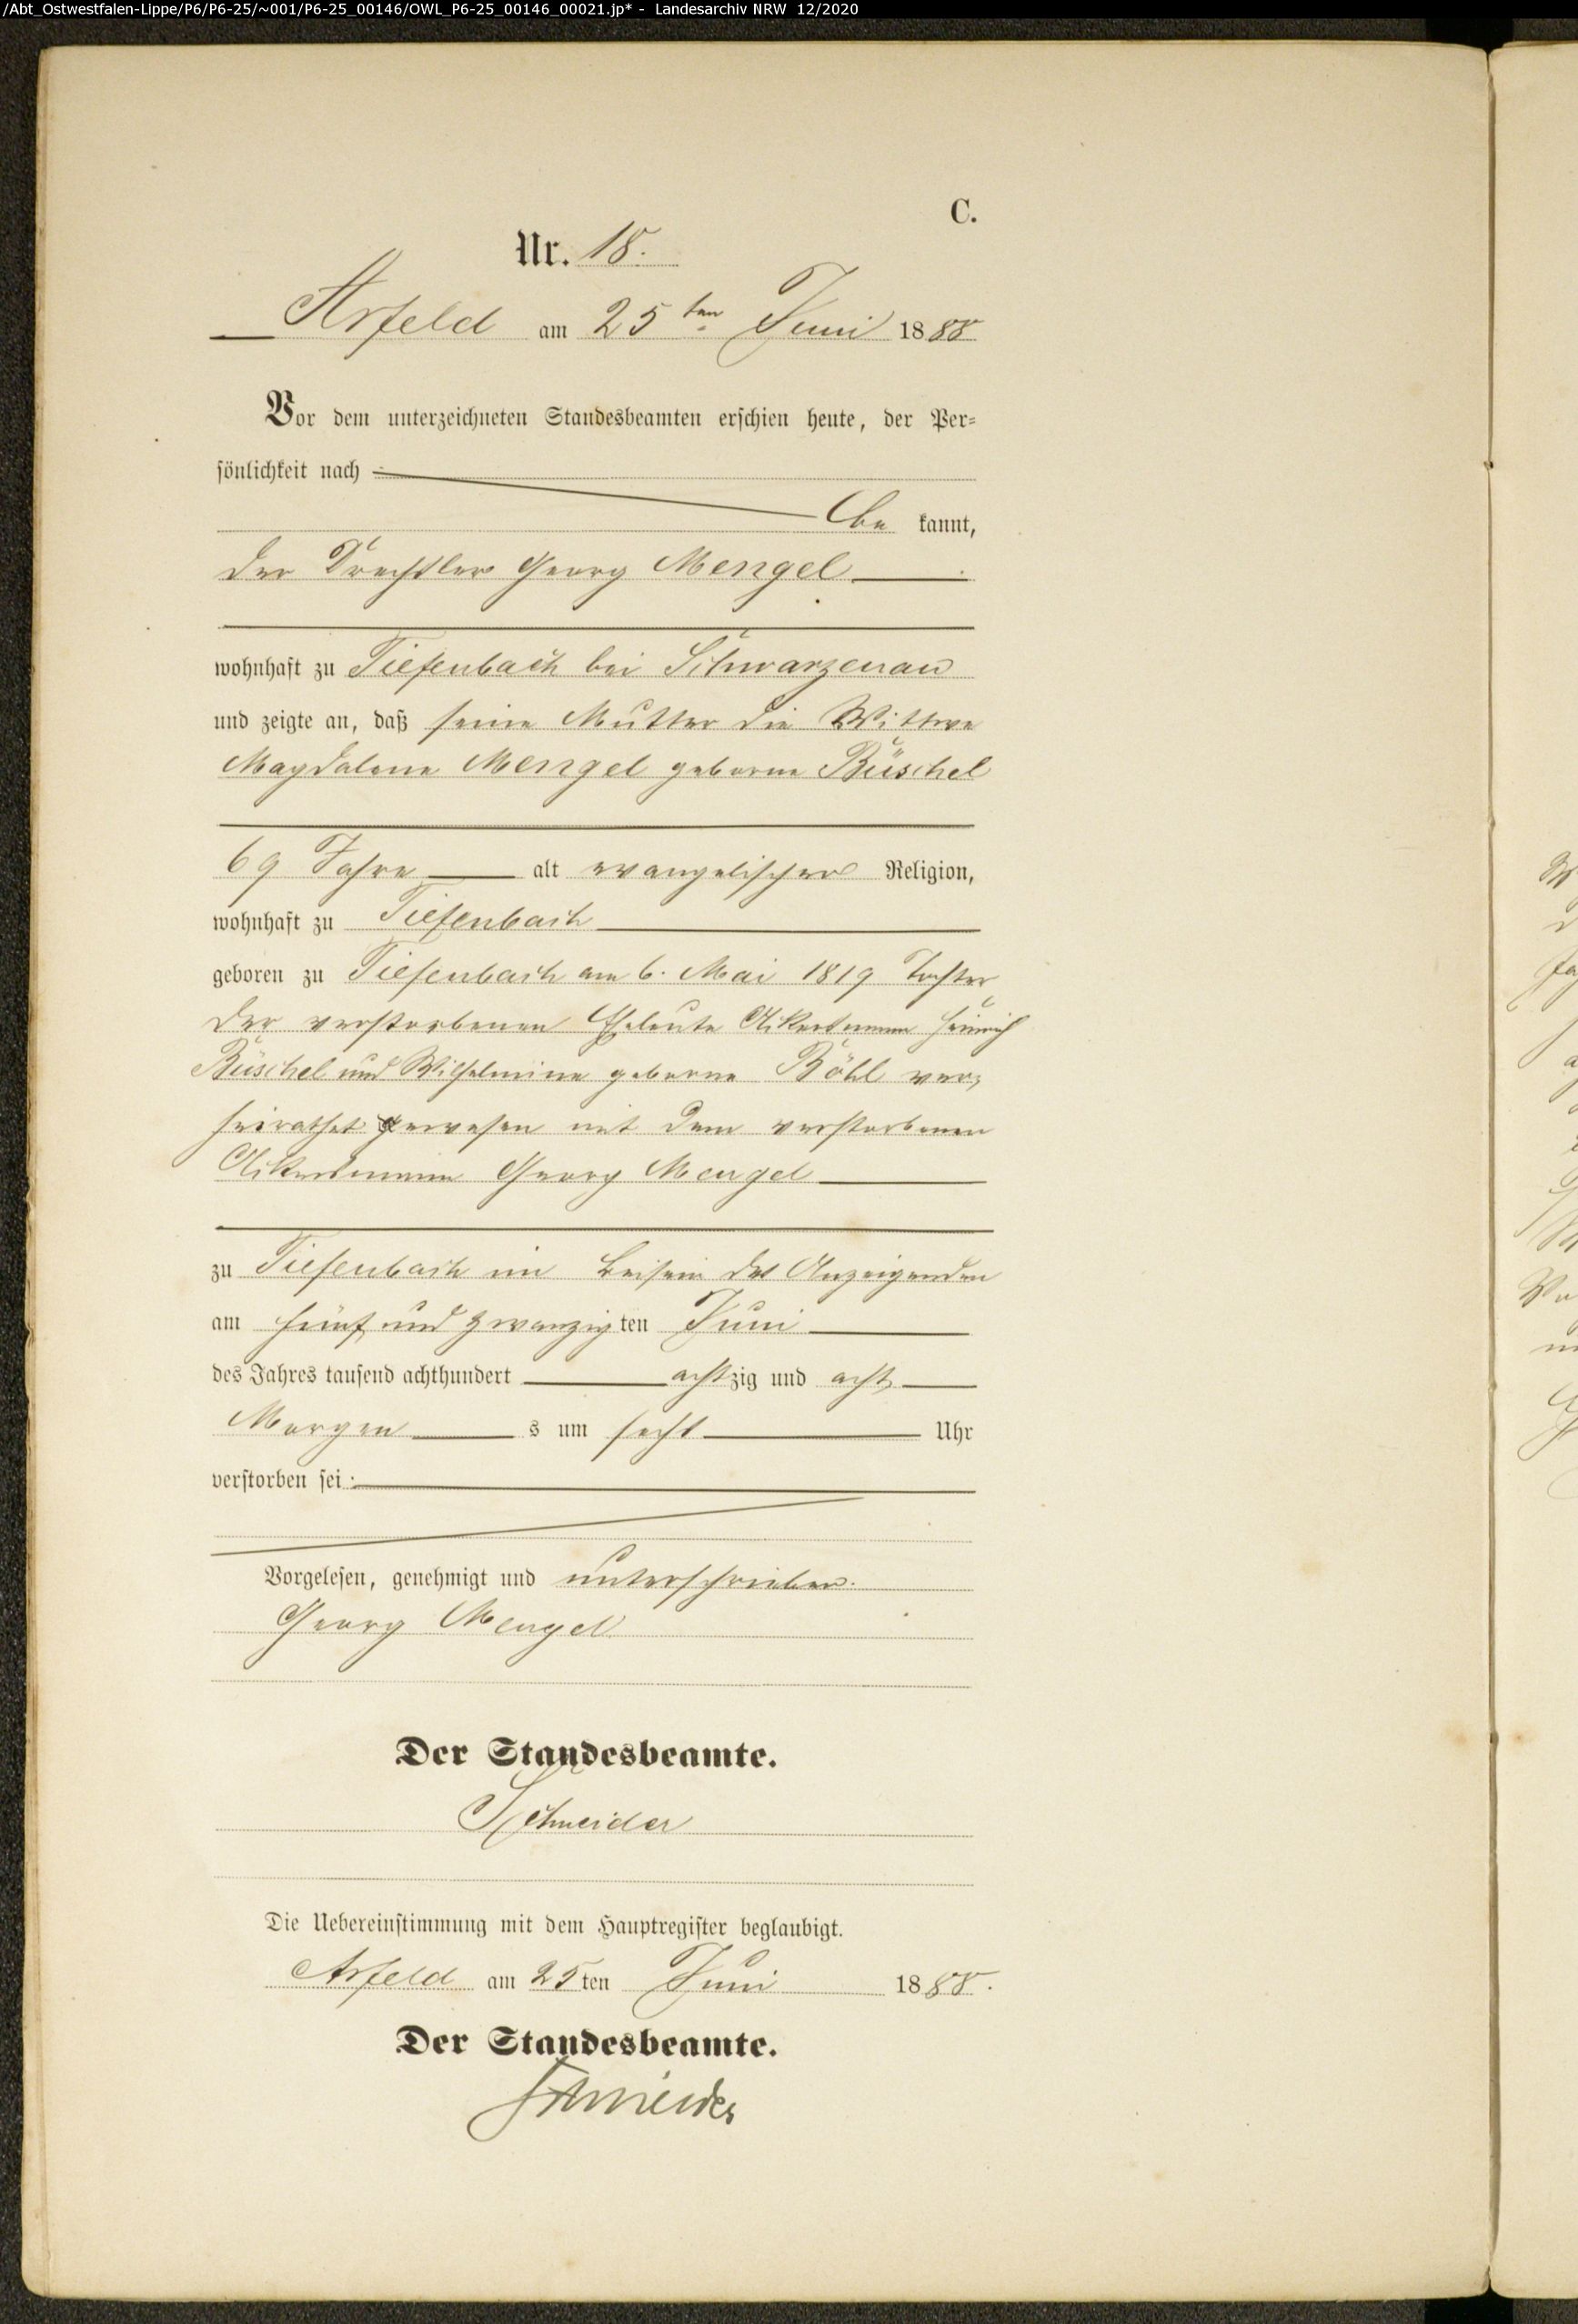 /Abt_Ostwestfalen-Lippe/P6/P6-25/~001/P6-25_00146/OWL_P6-25_00146_00021.jp* - Landesarchiv NRW 12/2020
C.
Nr. 18.
Arfeld am 25ten Juni 1888
Vor dem unterzeichneten Standesbeamten erschien heute, der Per-
sönlichkeit nach
be kannt,
der Drechsler Georg Mengel
wohnhaft zu Tiefenbach bei Schwarzenau
und zeigte an, daß seine Mutter die Wittwe
Magdalene Mengel geborne Büschel
69 Jahre alt evangelischer Religion,
wohnhaft zu Tiefenbach
geboren zu Tiefenbach am 6. Mai 1819 Tochter
der verstorbenen Eheleute Ackersmann Heinrich
Büschel und Wilhelmine geborne Böhl ver-
heirathet gewesen mit dem verstorbenen
Ackersmann Georg Mengel
zu Tiefenbach im Beisein des Anzeigenden
am fünf und zwanzigten Juni
des Jahres tausend achthundert achtzig und acht
Morgens um sechs Uhr
verstorben sei.
Vorgelesen, genehmigt und unterschrieben.
Georg Mengel
Der Standesbeamte.
Schneider
Die Uebereinstimmung mit dem Hauptregister beglaubigt.
Arfeld am 25ten Juni 1888.
Der Standesbeamte.
Schneider